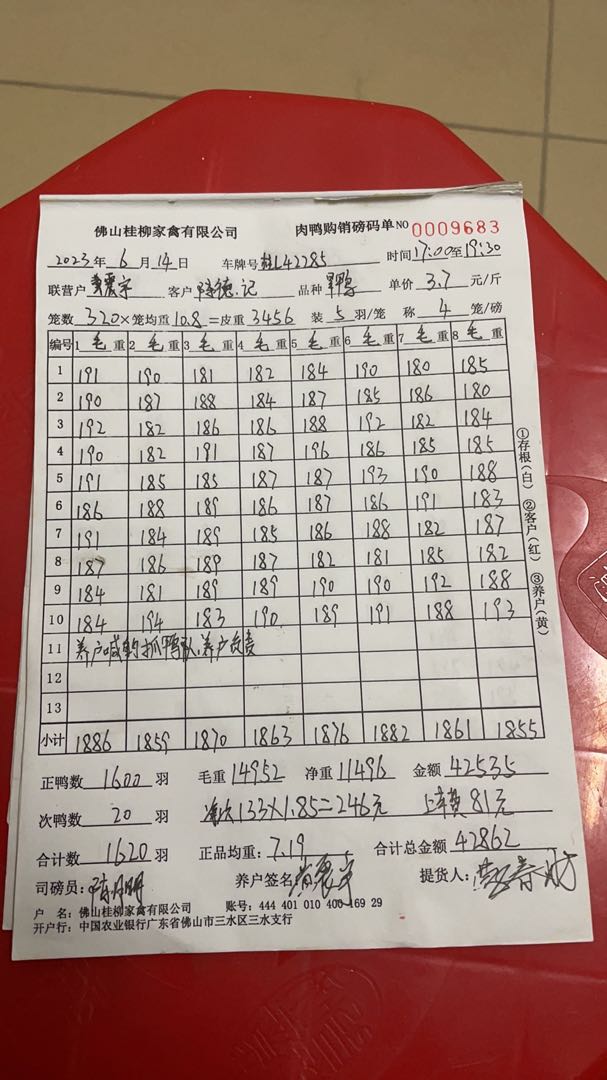 佛山桂柳家禽有限公司 肉鸭购销磅码单 NO 0009683
2023年 6月 14日 车牌号 桂L42285 时间 17:00至19:30
联营户 黄震宇 客户 陈德记 品种 单价 3.7 元/斤
笼数 320×笼均重 10.8=皮重 3456 装 5 羽/笼 称 4 笼/磅
编号 1 毛重 2 毛重 3 毛重 4 毛重 5 毛重 6 毛重 7 毛重 8 毛重
1 191 190 181 182 184 190 180 185
2 190 187 188 184 187 185 186 180
3 192 182 186 186 188 192 182 184
4 190 182 191 187 196 186 185 185
5 191 185 185 187 187 193 190 188
6 186 188 189 186 187 186 191 183
7 191 184 189 185 186 188 182 187
8 187 186 189 187 182 181 185 182
9 184 181 189 189 190 190 192 188
10 184 194 183 190 189 191 188 193
11 养户喊的抓鸭队,养户负责
12
13
小计 1886 1859 1870 1863 1876 1882 1861 1855
正鸭数 1600 羽 毛重 14952 净重 11496 金额 42535
次鸭数 20 羽 133×1.85=246元 上车费 81元
合计数 1620 羽 正品均重: 7.19 合计总金额 42862
司磅员: 养户签名 黄震宇 提货人:
户 名: 佛山桂柳家禽有限公司 账号: 444 401 010 400 169 29
开户行: 中国农业银行广东省佛山市三水区三水支行
①存根(白) ②客户(红) ③养户(黄)